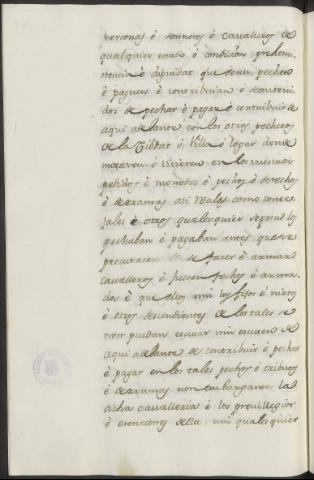 personas è sennores è Cavalleros de
qualquier estado è condicion, prehemi
nencia è dignidat que sean, pechen
è paguen è contribuian è sean teni
dos de pechar è pagar è contribuir de
aqui adelante con los otros pecheros
de la Cibdat ò Villa ò logar donde
moraren è vivieren en los nuestros
pedidos è monedas è pechos è derechos
è derramas asi reales como conce
jales è otros qualesquier segund los
pechaban è pagaban antes que se
procurasen de se facer è armar
cavalleros è fuesen fechos è arma
dos è que ellos nin los fijos è nietos
è otros descendientes de los tales se
non puedan escusar nin escusen de
aqui adelante de contribuir è pechar
è pagar en los tales pechos è tributos
è derramas non embargante la
dicha cavalleria è los previllegios
è esenciones della, nin qualesquier